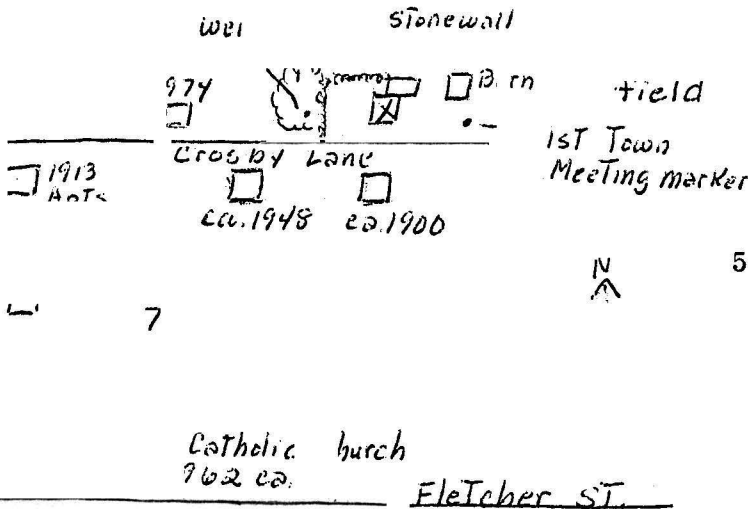 Stonewall
974
B rn
field
1st Town
Meeting marker
Crosby Lane
1913
Apts
ca. 1948
ca. 1900
N
5
7
Catholic hurch
962 ca.
Fletcher ST.